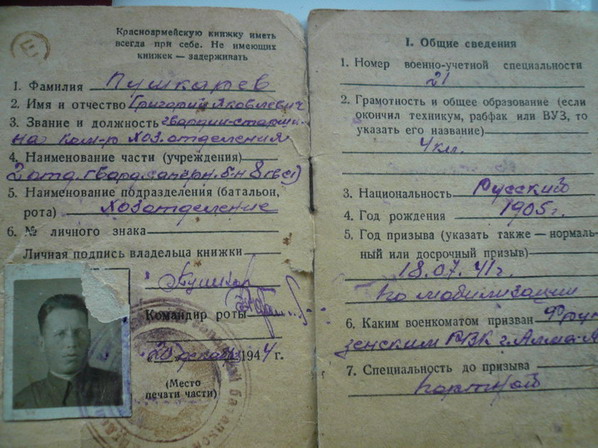 Красноармейскую книжку иметь
всегда при себе. Не имеющих
книжек — задерживать
1. Фамилия Пушкарев
2. Имя и отчество Григорий Яковлевич
3. Звание и должность гвардии-старши-
на ком-р хоз. отделения
4. Наименование части (учреждения)
2 отд. гвард. саперн. б-н
5. Наименование подразделения (батальон,
рота) Хоз отделение
6. № личного знака
Личная подпись владельца книжки
Командир роты
20 1944 г.
(Место
печати части)
I. Общие сведения
1. Номер военно-учетной специальности
21
2. Грамотность и общее образование (если
окончил техникум, рабфак или ВУЗ, то
указать его название)
4 кл.
3. Национальность Русский
4. Год рождения 1905 г.
5. Год призыва (указать также — нормаль-
ный или досрочный призыв)
18.07.41 г.
по мобилизации
6. Каким военкоматом призван Фрун
зенским РВК г. Алма-А
7. Специальность до призыва
портной